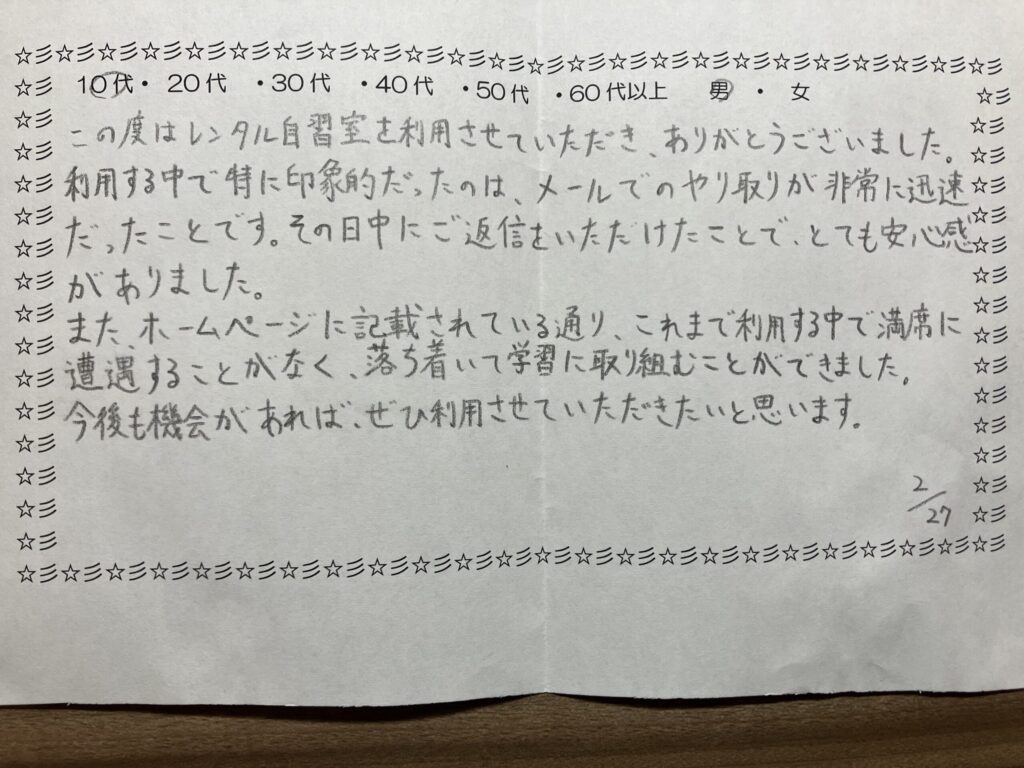 10代・ 20代 ・30代 ・40代 ・50代 ・60代以上 男 ・ 女
この度はレンタル自習室を利用させていただき、ありがとうございました。
利用する中で特に印象的だったのは、メールでのやり取りが非常に迅速
だったことです。その日中にご返信をいただけたことで、とても安心感
がありました。
また、ホームページに記載されている通り、これまで利用する中で満席に
遭遇することがなく、落ち着いて学習に取り組むことができました。
今後も機会があれば、ぜひ利用させていただきたいと思います。
2/27